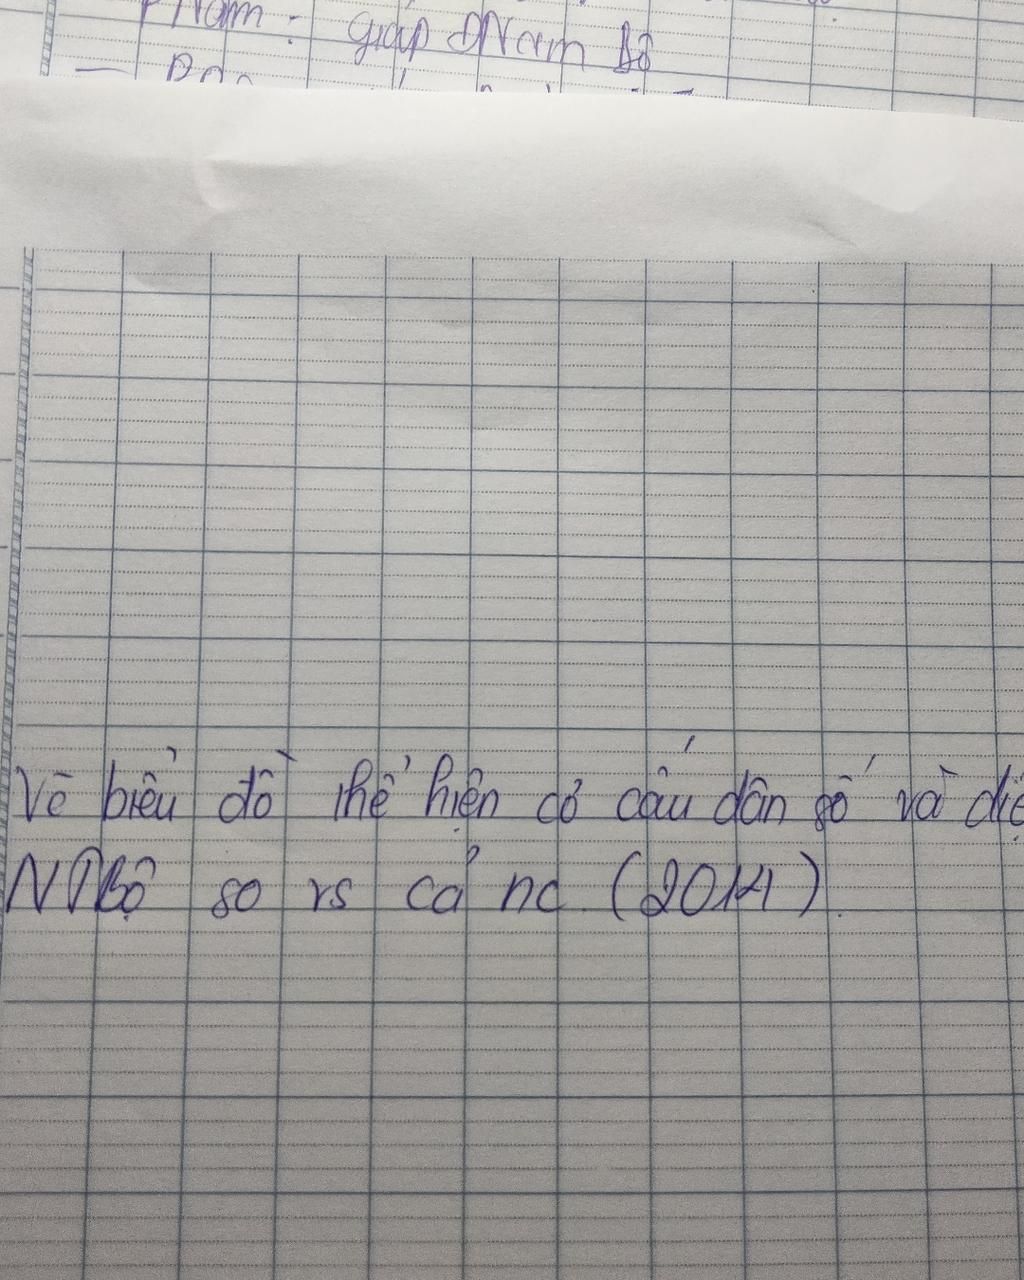 Nam : giáp ĐNam Bộ
Vẽ biểu đồ thể hiện cơ cấu dân số và
NTBộ so vs cả nc (2014).